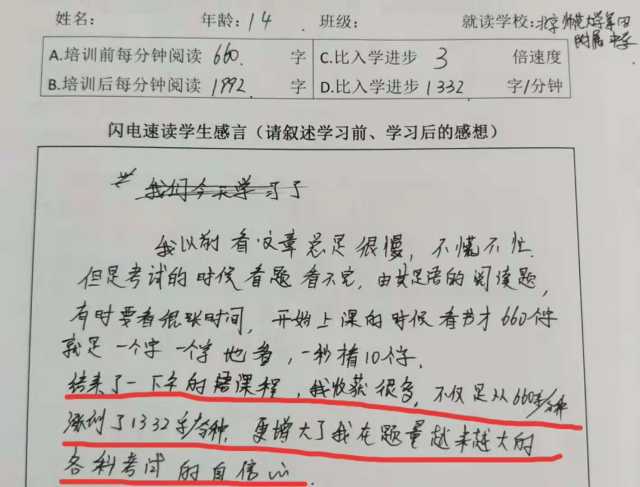 姓名： 年龄：14 班级： 就读学校：北京师范大学第四附属中学
A.培训前每分钟阅读 660 字 C.比入学进步 3 倍速度
B.培训后每分钟阅读 1992 字 D.比入学进步 1332 字/1分钟
闪电速读学生感言（请叙述学习前、学习后的感想）
我们今天学习了
我以前看文章总是很慢，不慌不忙
但是考试的时候看题看不完，由其是语的阅读题，
有时要看很长时间，开始上课的时候看书才660个字
就是一个字一个字地看，一秒10个字.
结束了一下午的课程，我收获很多，不仅是从660字/分钟
涨到了1332字/分钟，更增大了我在题量越来越大的
各科考试的自信心.